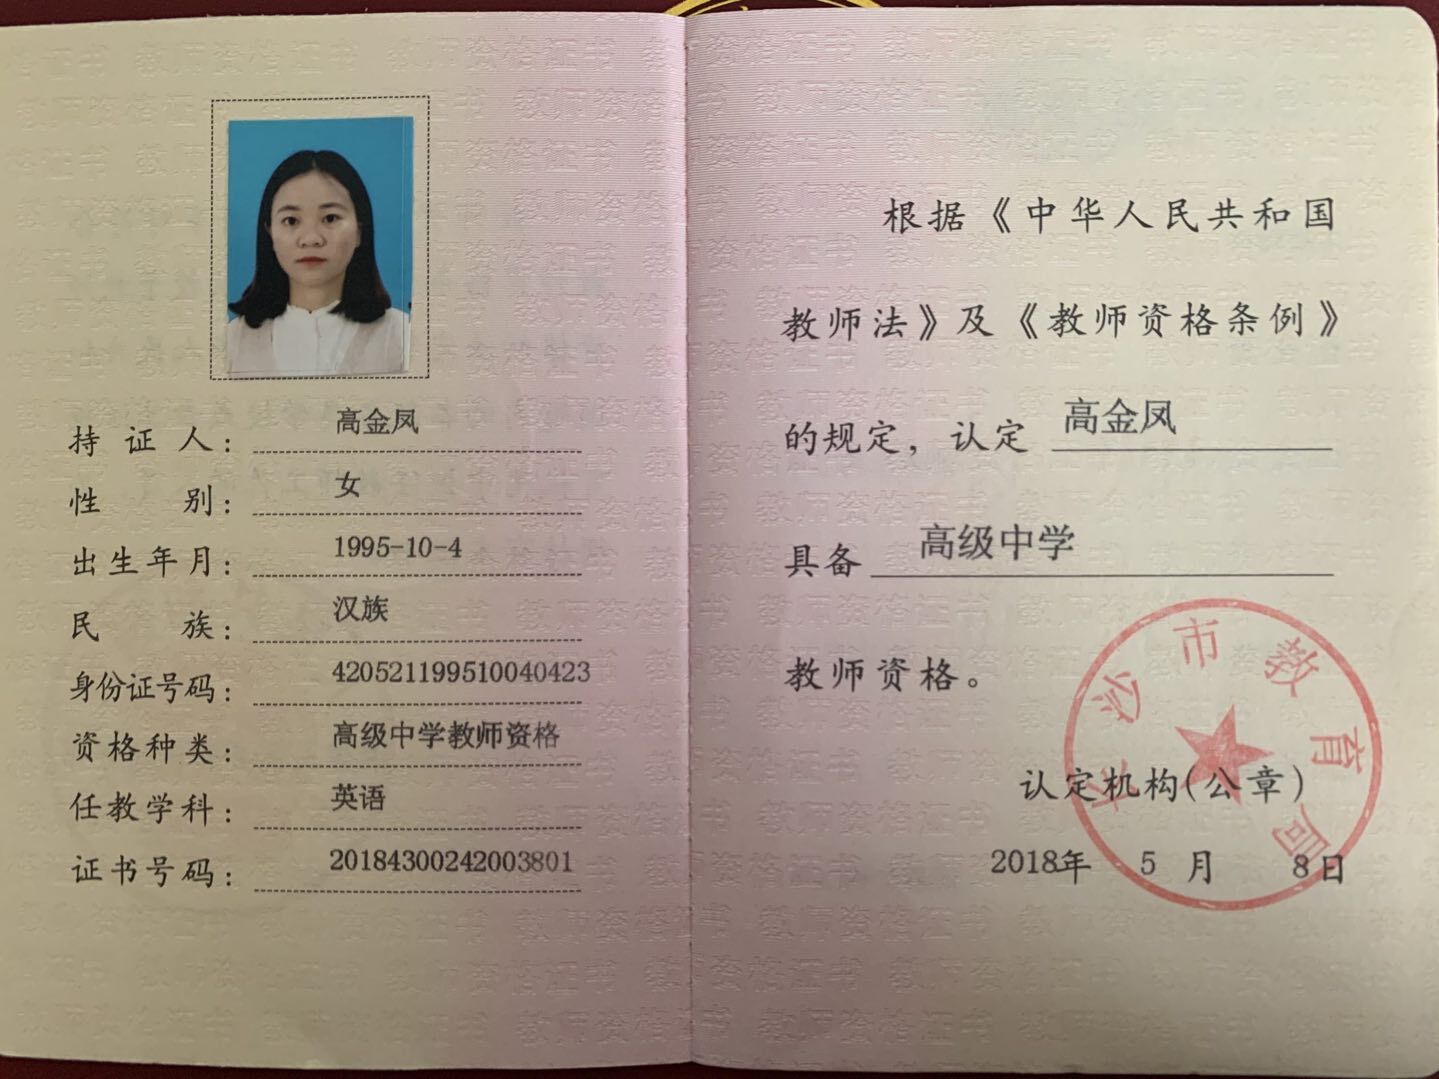 持证人：高金凤
性别：女
出生年月：1995-10-4
民族：汉族
身份证号码：420521199510040423
资格种类：高级中学教师资格
任教学科：英语
证书号码：20184300242003801
根据《中华人民共和国
教师法》及《教师资格条例》
的规定，认定 高金凤
具备 高级中学
教师资格。
长沙市教育局
认定机构(公章)
2018年 5月 8日